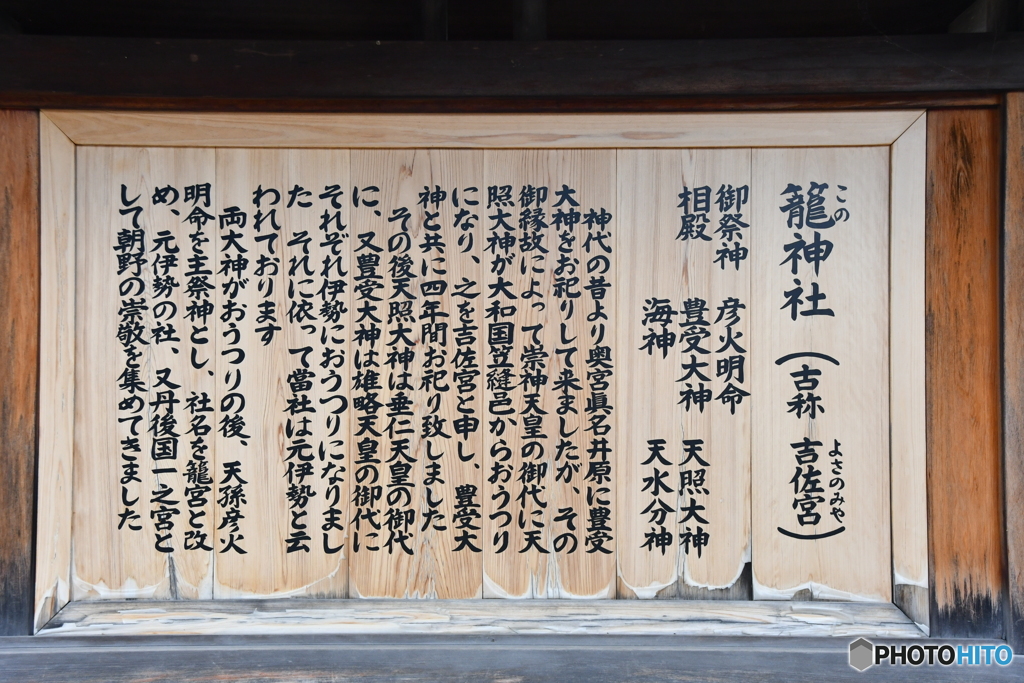 籠神社（古称 吉佐宮）
この
よさのみや
御祭神 彦火明命
相殿 豊受大神 天照大神
海神 天水分神
神代の昔より奥宮眞名井原に豊受
大神をお祀りして来ましたが、その
御縁故によって崇神天皇の御代に天
照大神が大和国笠縫邑からおうつり
になり、之を吉佐宮と申し、豊受大
神と共に四年間お祀り致しました
その後天照大神は垂仁天皇の御代
に、又豊受大神は雄略天皇の御代に
それぞれ伊勢におうつりになりまし
た それに依って當社は元伊勢と云
われております
両大神がおうつりの後、天孫彦火
明命を主祭神とし、社名を籠宮と改
め、元伊勢の社、又丹後国一之宮と
して朝野の崇敬を集めてきました
PHOTOHITO